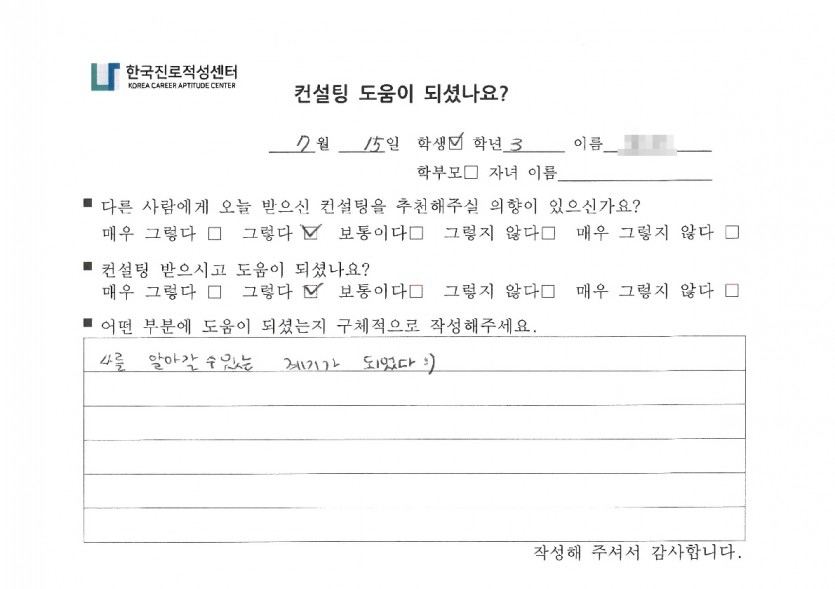 한국진로적성센터
KOREA CAREER APTITUDE CENTER
컨설팅 도움이 되셨나요?
7월 15일 학생☑ 학년 3 이름
학부모□ 자녀 이름
■ 다른 사람에게 오늘 받으신 컨설팅을 추천해주실 의향이 있으신가요?
매우 그렇다 □ 그렇다 ☑ 보통이다□ 그렇지 않다□ 매우 그렇지 않다 □
■ 컨설팅 받으시고 도움이 되셨나요?
매우 그렇다 □ 그렇다 ☑ 보통이다□ 그렇지 않다□ 매우 그렇지 않다 □
■ 어떤 부분에 도움이 되셨는지 구체적으로 작성해주세요.
나를 알아갈 수 있는 계기가 되었다 :)
작성해 주셔서 감사합니다.